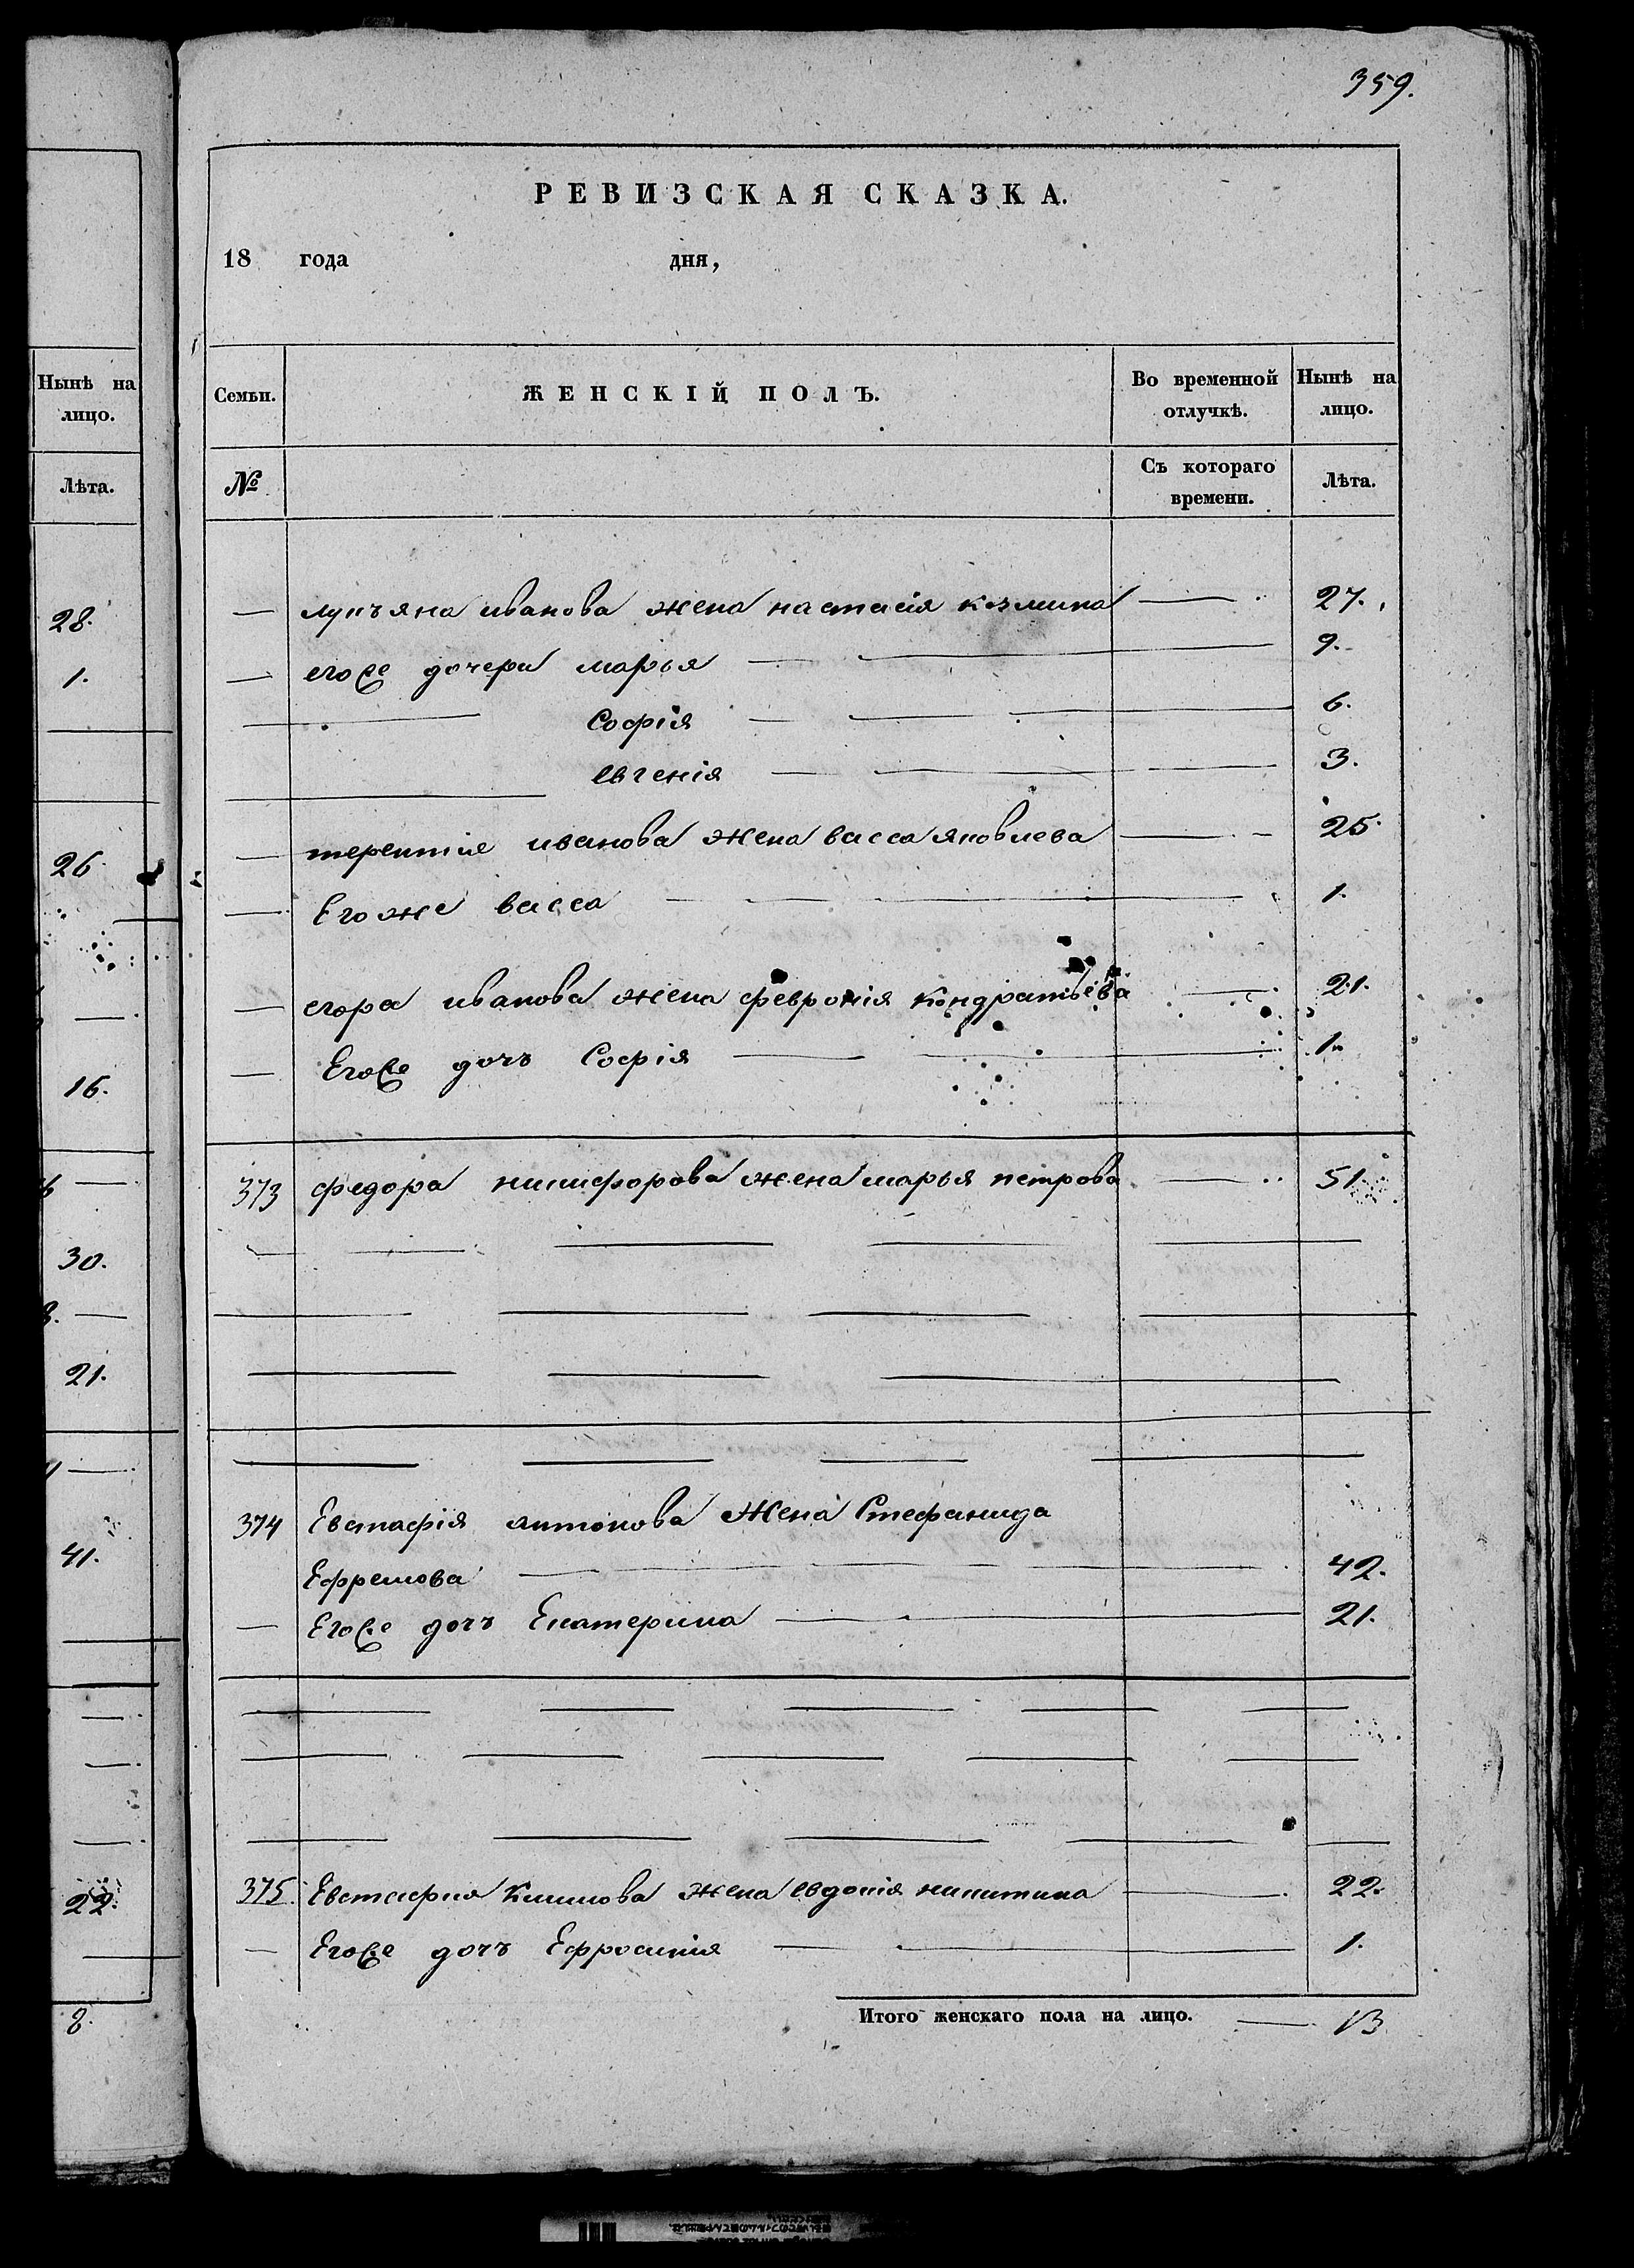 359.
РЕВИЗСКАЯ СКАЗКА.
18 года дня,
Нынѣ на лицо.
Лѣта.
28.
1.
26.
16.
30.
21.
41.
22.
8.
Семьи. ЖЕНСКІЙ ПОЛЪ. Во временной отлучкѣ. Нынѣ на лицо.
№ Съ котораго времени. Лѣта.
лукъяна иванова жена настасія козмина 27.
егоже дочери марья 9.
Софія 6.
евгенія 3.
терентия иванова жена васса яковлева 25.
Егоже васса 1.
егора иванова жена февронія кондратьева 21.
Егоже дочь Софія 1.
373 федора никифорова жена марья петрова 51.
374 Евстафія антонова жена Стефанида
Ефремова 42.
Егоже дочь Екатерина 21.
375. Евстафия Климова жена евдокія никитина 22.
Егоже дочь Ефросинія 1.
Итого женскаго пола на лицо. 13